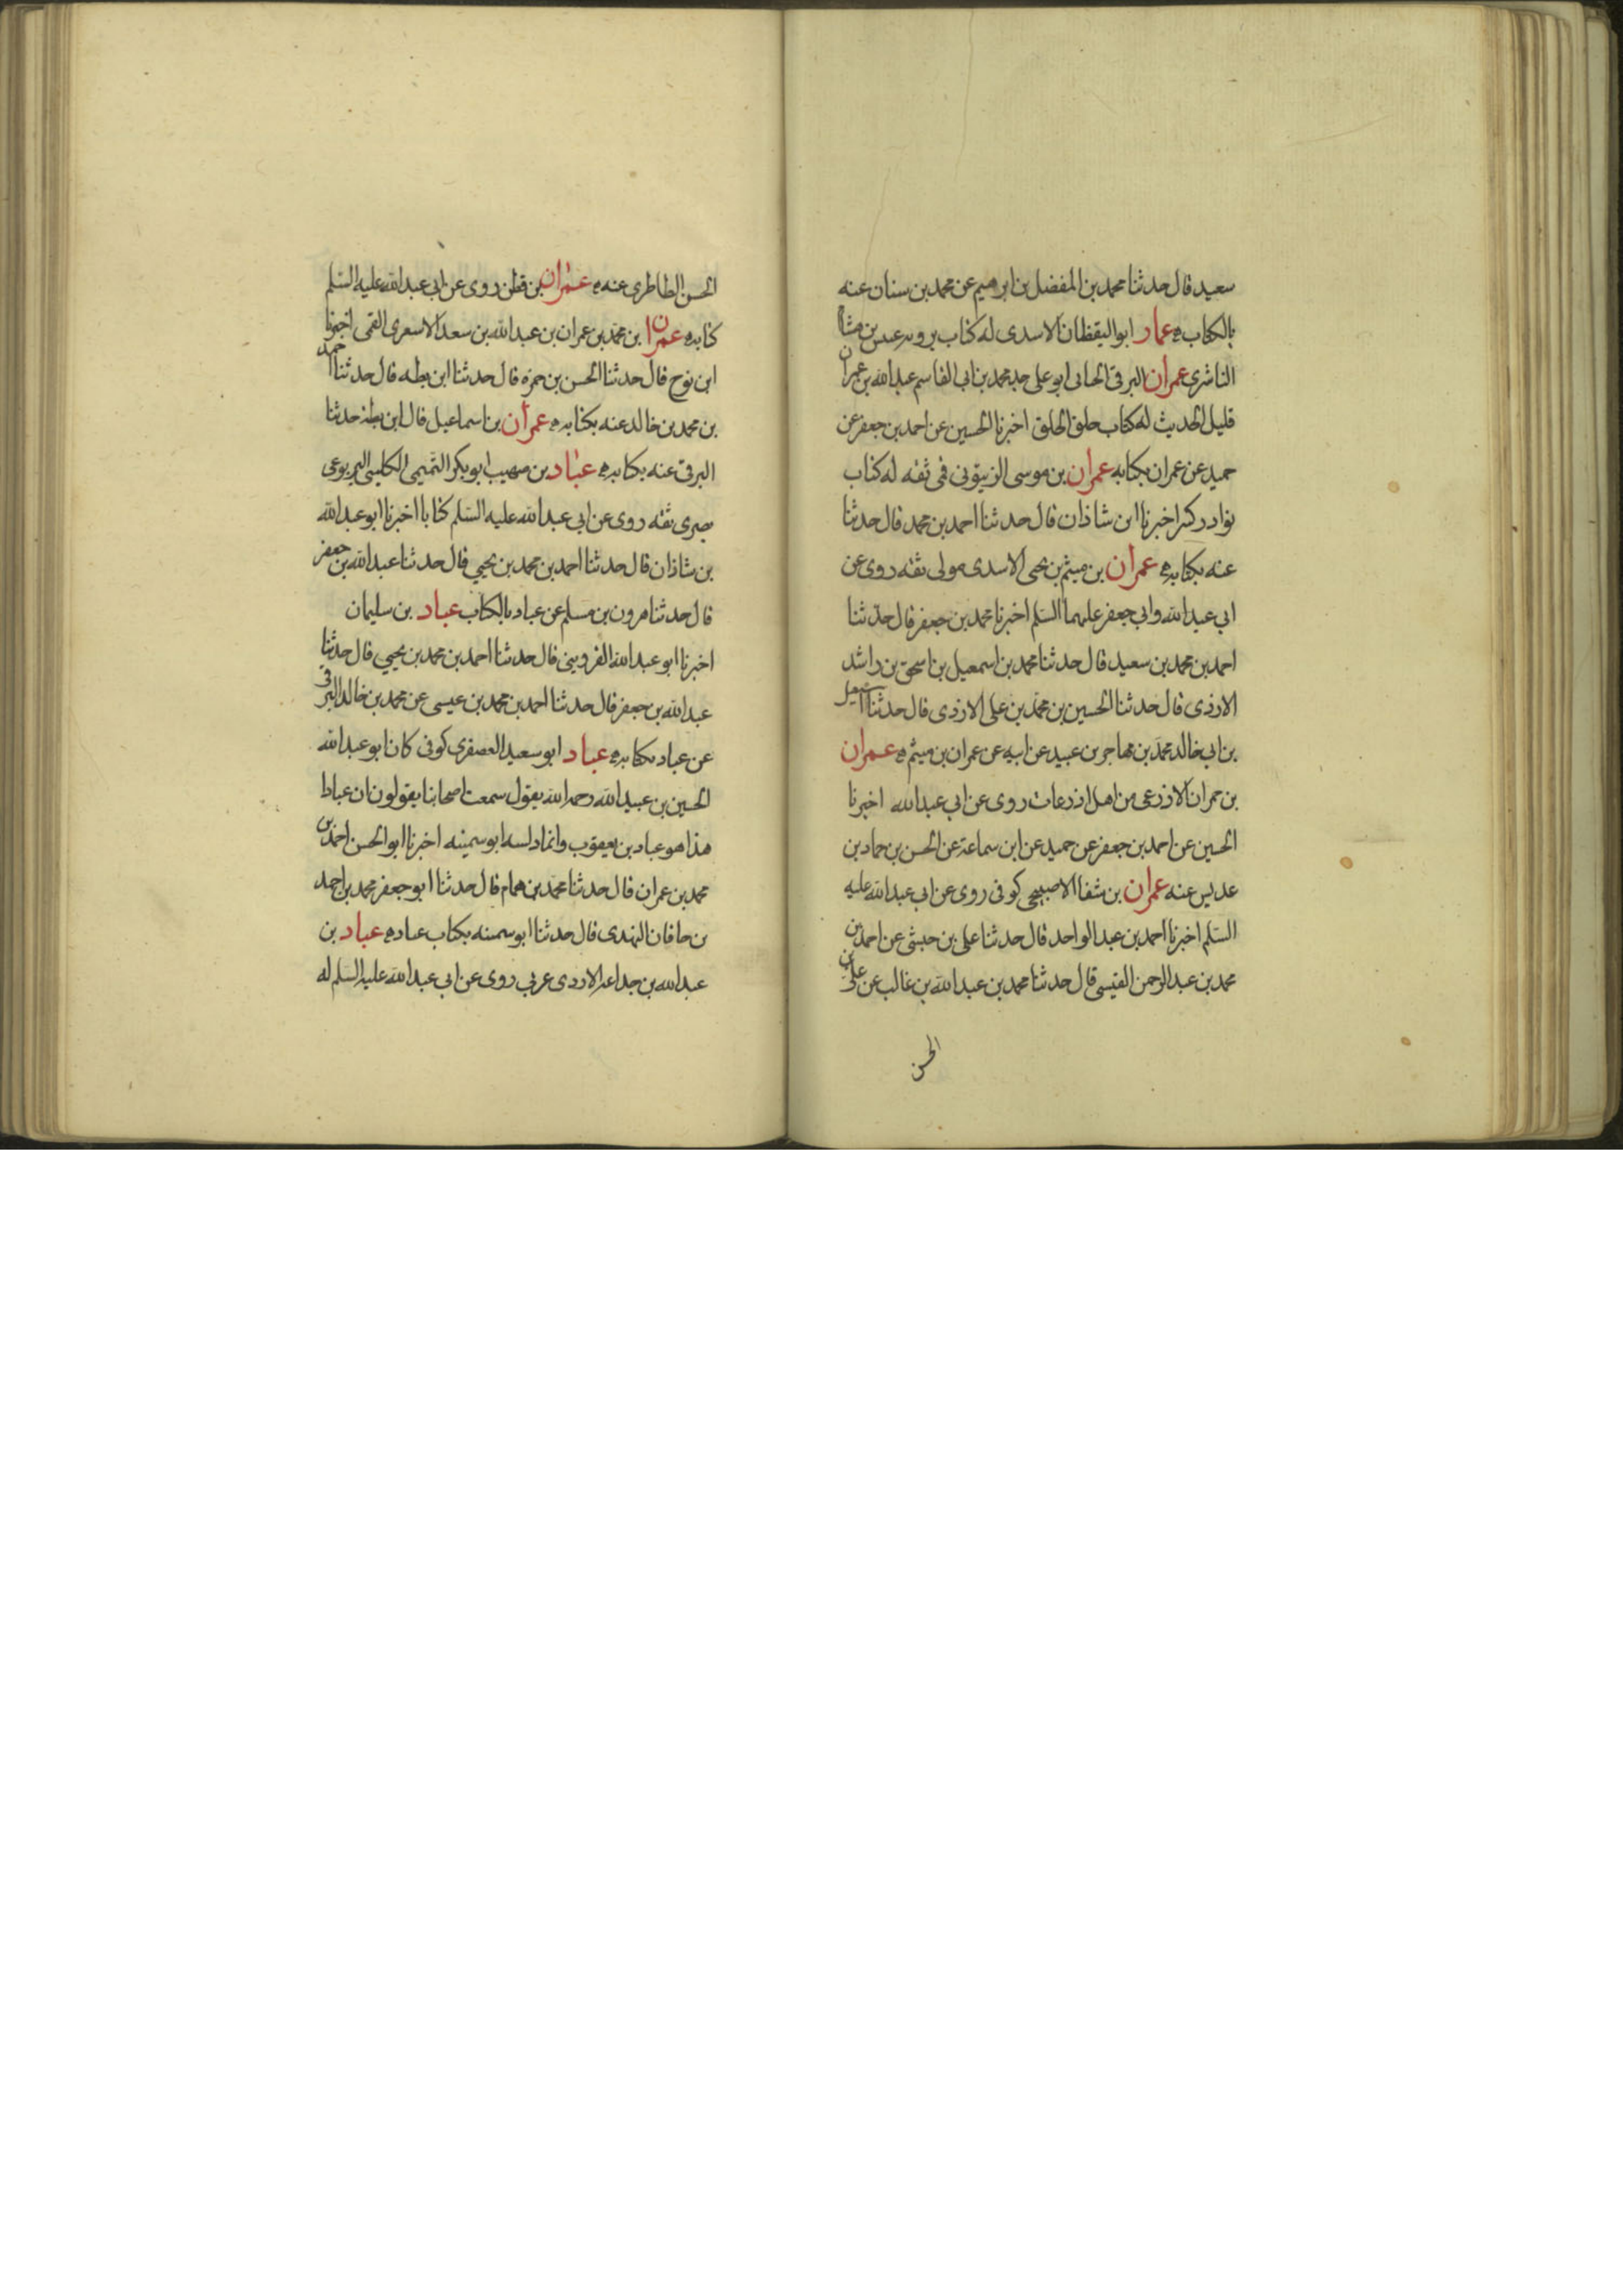 سعيد قال حدثنا محمد بن المفضل بن ابرهيم عن محمد بن سنان عنه
بالكتاب عمار ابو اليقظان الاسدى له كتاب يرويه عبيس بن هشام
الناشرى عمران البرقى الجنانى ابو على جد محمد بن ابى القاسم عبد الله بن عمران
قليل الحديث له كتاب خلق الخلق اخبرنا الحسين عن احمد بن جعفر عن
حميد عن عمران بكتابه عمران بن موسى الزيتونى قمى ثقه له كتاب
نوادر كبير اخبرنا ابن شاذان قال حدثنا احمد بن محمد قال حدثنا
عنه بكتابه عمران بن ميثم بن يحيى الاسدى مولى ثقه روى عن
ابى عبد الله وابى جعفر عليهما السلم اخبرنا محمد بن جعفر قال حدثنا
احمد بن محمد بن سعيد قال حدثنا محمد بن اسمعيل بن اسحق بن راشد
الازدى قال حدثنا الحسين بن محمد بن على الازدى قال حدثنا اسمعيل
بن ابى خالد محمد بن مهاجر بن عبيد عن ابيه عن عمران بن ميثم عمران
بن حمران الاذرعى من اهل اذرعات روى عن ابى عبد الله اخبرنا
الحسين عن احمد بن جعفر عن حميد عن ابن سماعة عن الحسن بن حماد بن
عديس عنه عمران بن شفا الاصبحى كوفى روى عن ابى عبد الله عليه
السلم اخبرنا احمد بن عبد الواحد قال حدثنا على بن حبشى عن احمد بن
محمد بن عبد الرحمن القيسى قال حدثنا محمد بن عبد الله بن غالب عن على بن
الحسن
الحسن الطاطرى عنه عمران بن قطن روى عن ابى عبد الله عليه السلم
كتابه عمران بن محمد بن عمران بن عبد الله بن سعد الاشعرى القمى اخبرنا
ابن نوح قال حدثنا الحسن بن حمزه قال حدثنا ابن بطه قال حدثنا احمد
بن محمد بن خالد عنه بكتابه عمران بن اسماعيل قال ابن بطة حدثنا
البرقى عنه بكتابه عباد بن صهيب ابو بكر التميمى الكليبى اليربوعى
بصرى ثقه روى عن ابى عبد الله عليه السلم كتابا اخبرنا ابو عبد الله
بن شاذان قال حدثنا احمد بن محمد بن يحيى قال حدثنا عبد الله بن جعفر
قال حدثنا هرون بن مسلم عن عباد بالكتاب عباد بن سليمان
اخبرنا ابو عبد الله القزوينى قال حدثنا احمد بن محمد بن يحيى قال حدثنا
عبد الله بن جعفر قال حدثنا احمد بن محمد بن عيسى عن محمد بن خالد البرقى
عن عباد بكتابه عباد ابو سعيد العصفرى كوفى كان ابو عبد الله
الحسين بن عبيد الله رحمه الله يقول سمعت اصحابنا يقولون ان عبادا
هذا هو عباد بن يعقوب وانما دلسه ابو سمينه اخبرنا ابو الحسن احمد بن
محمد بن عمران قال حدثنا محمد بن همام قال حدثنا ابو جعفر محمد بن احمد
بن خاقان النهدى قال حدثنا ابو سمينه بكتاب عباد عباد بن
عبد الله بن جداعه الازدى عربى روى عن ابى عبد الله عليه السلم له